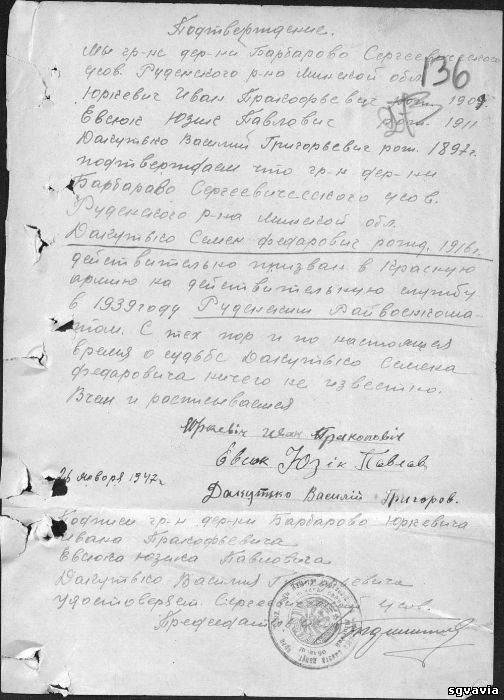 Подтверждение.
Мы гр-не дер-ни Барбарово Сергеевического
с/сов. Руденского р-на Минской обл.
136
Юркевич Иван Пракофьевич рож. 1909
Евсюк Юзик Павлович рож. 1911
Дакутько Василий Григорьевич рож. 1892 г.
подтверждаем что гр-н дер-ни
Барбарово Сергеевичесского с/сов.
Руденского р-на Минской обл.
Дакутько Семен Федарович рожд. 1916 г.
действительно призван в Красную
армию на действительную службу
в 1939 году Руденским Райвоенкома-
том. С тех пор и по настоящея
время о судьбе Дакутько Семена
Федаровича ничего не известно.
В чем и расписываемся
Юркевіч Иван Пракопавіч
Евсюк Юзік Павлав
26 января 1947 г.
Дакутько Василий Григоров.
Подписи гр-н дер-ни Барбарово Юркевича
Ивана Пракофьевича
Евсюка Юзика Павловича
Дакутько Василия Григорьевича
удостоверяет Сергеевический с/сов.
Председатель
sgvavia